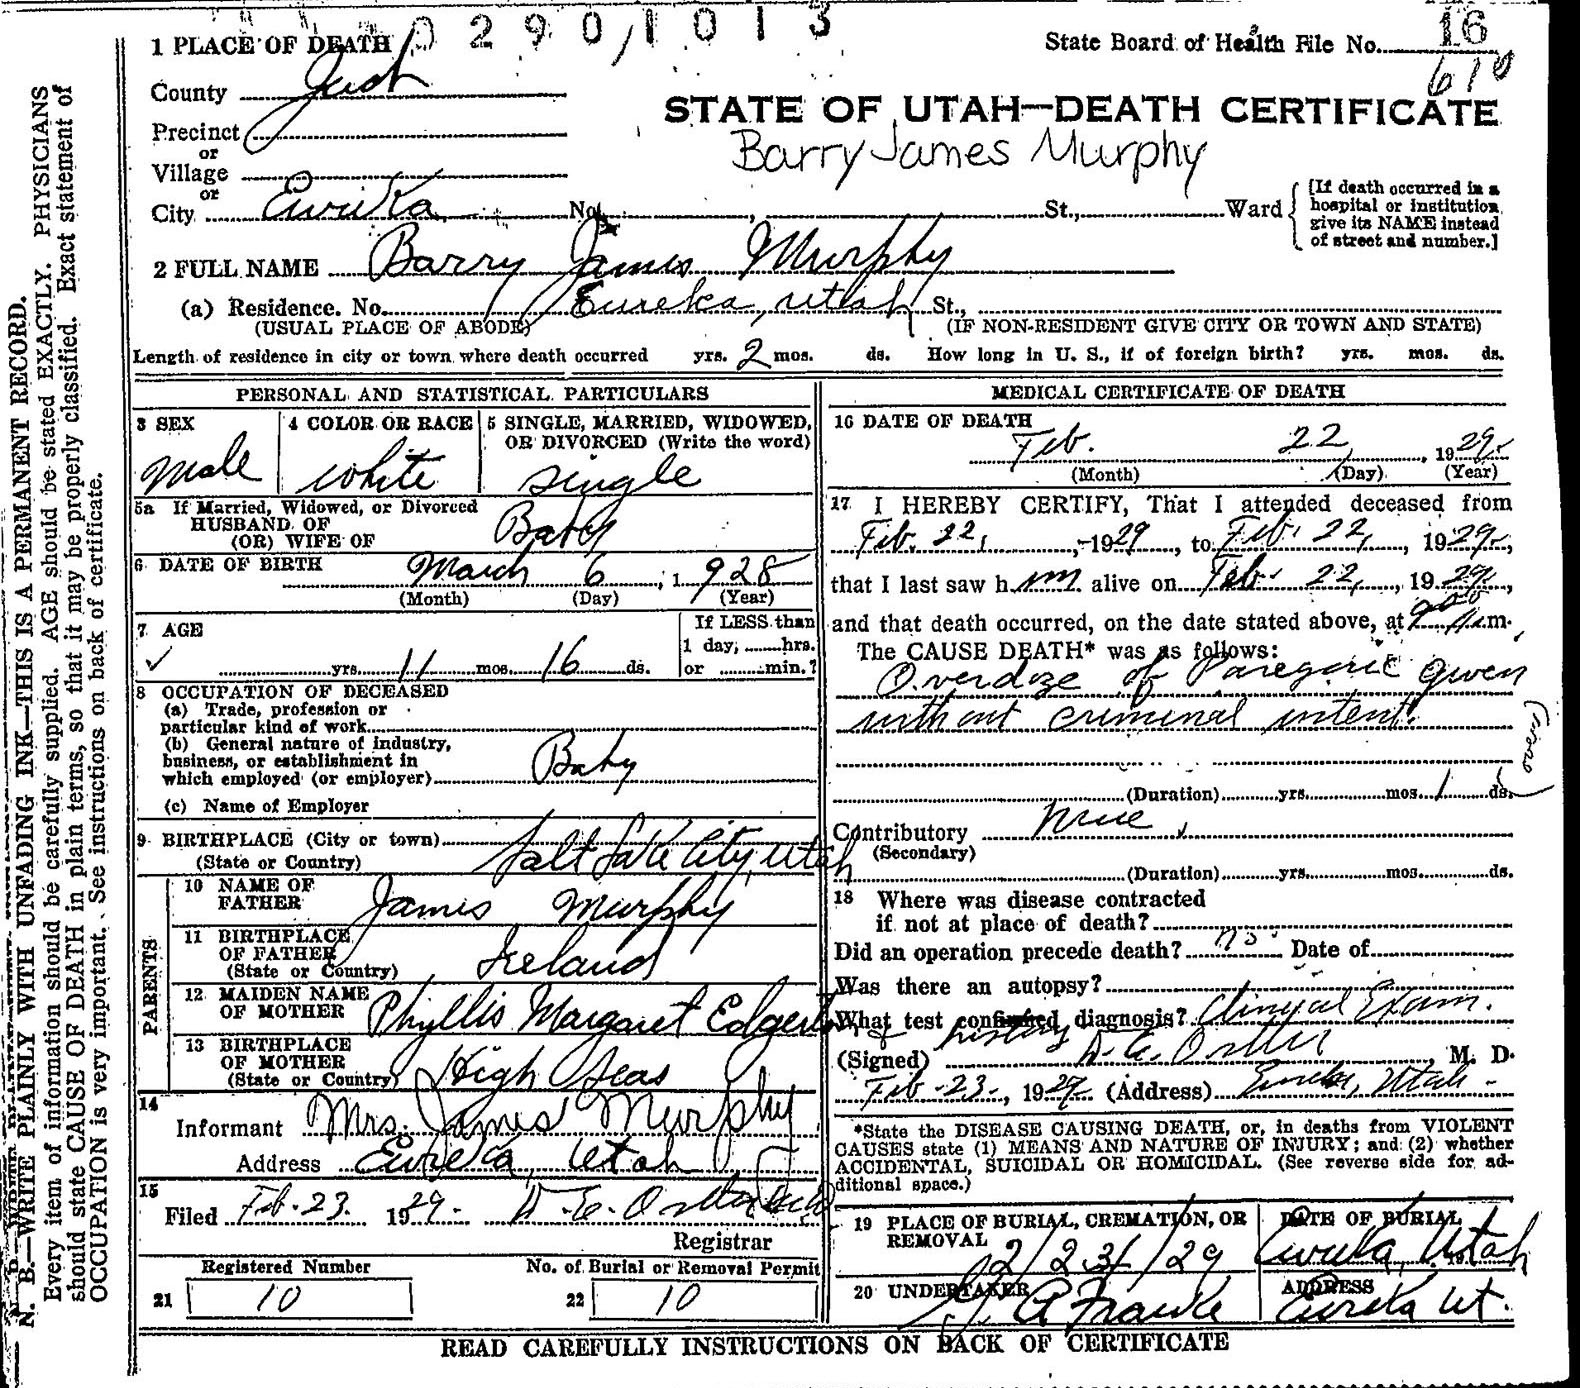 0290 1013
1 PLACE OF DEATH
State Board of Health File No. 16
610
County Juab
STATE OF UTAH—DEATH CERTIFICATE
Precinct
or
Barry James Murphy
Village
or
City Eureka No. St., Ward
[If death occurred in a
hospital or institution
give its NAME instead
of street and number.]
2 FULL NAME Barry James Murphy
(a) Residence. No. Eureka, Utah St.,
(USUAL PLACE OF ABODE) (IF NON-RESIDENT GIVE CITY OR TOWN AND STATE)
Length of residence in city or town where death occurred yrs. 2 mos. ds. How long in U. S., if of foreign birth? yrs. mos. ds.
PERSONAL AND STATISTICAL PARTICULARS
3 SEX
Male
4 COLOR OR RACE
white
5 SINGLE, MARRIED, WIDOWED,
OR DIVORCED (Write the word)
single
5a If Married, Widowed, or Divorced
HUSBAND OF
(OR) WIFE OF
Baby
6 DATE OF BIRTH March 6, 1928
(Month) (Day) (Year)
7 AGE
yrs. 11 mos. 16 ds.
If LESS than
1 day, hrs.
or min.?
8 OCCUPATION OF DECEASED
(a) Trade, profession or
particular kind of work
(b) General nature of industry,
business, or establishment in
which employed (or employer) Baby
(c) Name of Employer
9 BIRTHPLACE (City or town)
(State or Country) Salt Lake City, Utah
PARENTS
10 NAME OF
FATHER James Murphy
11 BIRTHPLACE
OF FATHER
(State or Country) Ireland
12 MAIDEN NAME
OF MOTHER Phyllis Margaret Edgerton
13 BIRTHPLACE
OF MOTHER
(State or Country) High Seas
14
Informant Mrs. James Murphy
Address Eureka, Utah
15
Filed Feb. 23, 1929. D. E. Ostler
Registrar
Registered Number
21 10
No. of Burial or Removal Permit
22 10
MEDICAL CERTIFICATE OF DEATH
16 DATE OF DEATH
Feb. 22, 1929.
(Month) (Day) (Year)
17 I HEREBY CERTIFY, That I attended deceased from
Feb. 22, 1929, to Feb. 22, 1929,
that I last saw him alive on Feb. 22, 1929,
and that death occurred, on the date stated above, at m.
The CAUSE DEATH* was as follows:
Overdoze of Paregoric given
without criminal intent.
(over)
(Duration) yrs. mos. 1 ds.
Contributory None
(Secondary)
(Duration) yrs. mos. ds.
18 Where was disease contracted
if not at place of death?
Did an operation precede death? no. Date of
Was there an autopsy?
What test confirmed diagnosis? Clinical Exam.
& history
(Signed) D. E. Ostler, M. D.
Feb. 23, 1929 (Address) Eureka, Utah
*State the DISEASE CAUSING DEATH, or, in deaths from VIOLENT
CAUSES state (1) MEANS AND NATURE OF INJURY; and (2) whether
ACCIDENTAL, SUICIDAL OR HOMICIDAL. (See reverse side for ad-
ditional space.)
19 PLACE OF BURIAL, CREMATION, OR
REMOVAL
2/23/29
DATE OF BURIAL
Eureka, Utah 19
20 UNDERTAKER
A Franke
ADDRESS
Eureka Ut.
READ CAREFULLY INSTRUCTIONS ON BACK OF CERTIFICATE
N. B.—WRITE PLAINLY WITH UNFADING INK—THIS IS A PERMANENT RECORD.
Every item of information should be carefully supplied. AGE should be stated EXACTLY. PHYSICIANS
should state CAUSE OF DEATH in plain terms, so that it may be properly classified. Exact statement of
OCCUPATION is very important. See instructions on back of certificate.